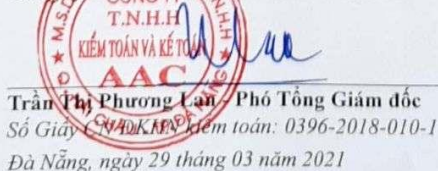 CÔNG TY
T.N.H.H
KIỂM TOÁN VÀ KẾ TOÁN
AAC
Trần Thị Phương Lan - Phó Tổng Giám đốc
Số Giấy CN ĐKHN kiểm toán: 0396-2018-010-1
Đà Nẵng, ngày 29 tháng 03 năm 2021